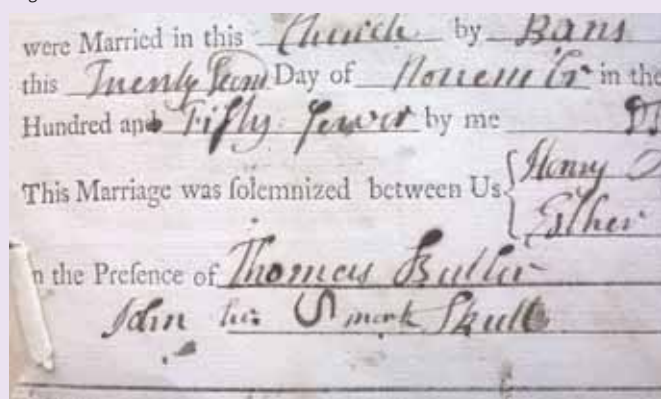 were Married in this Church by Bans
this Twenty Day of Novembr in the
Hundred and Fifty by me
This Marriage was ſolemnized between Us Henry
Esther
n the Preſence of Thomas Butler
John his S mark Skull